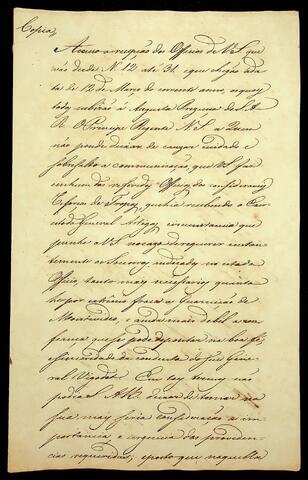 Copia,
Accuso a recepção dos Officios de V.S. que
vão desde N. 12 até 31. e que chegão a da
ta de 12 de Maio do corrente anno, os quaes
todos subirão á Augusta Prezença de S. A.
R. O Principe Regente N. S. a Quem
não poude deixar de cauzar cuidado e
sobresalto a communicação, que V.S. faz
em hum dos referidos Officios, dos consideraveis
reforços de Tropas, que havia recebido o Cau
dilho General Artigas, circunstancia que
punha V.S. no cazo de requerer instan
temente os Soccorros indicados no citado
Officio, tanto mais necessarios quanto
he por extremo fraca a Guarnição de
Montevideo, e ainda mais debil a con
fiança que se pode depositar na boa fé,
e sinceridade da conducta do seu Gene
ral Vigodet. Em taes termos não
podia S. A. R. deixar de tomar na
sua mais seria consideração a im
portancia, e urgencia das providen
cias requeridas; e posto que naquella